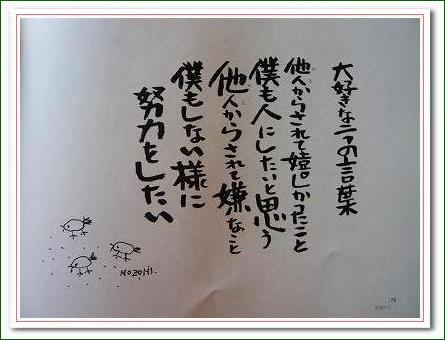 大好きな二つの言葉
他人からされて嬉しかったこと
僕も人にしたいと思う
他人からされて嫌なこと
僕もしない様に
努力をしたい
NOZOMI.